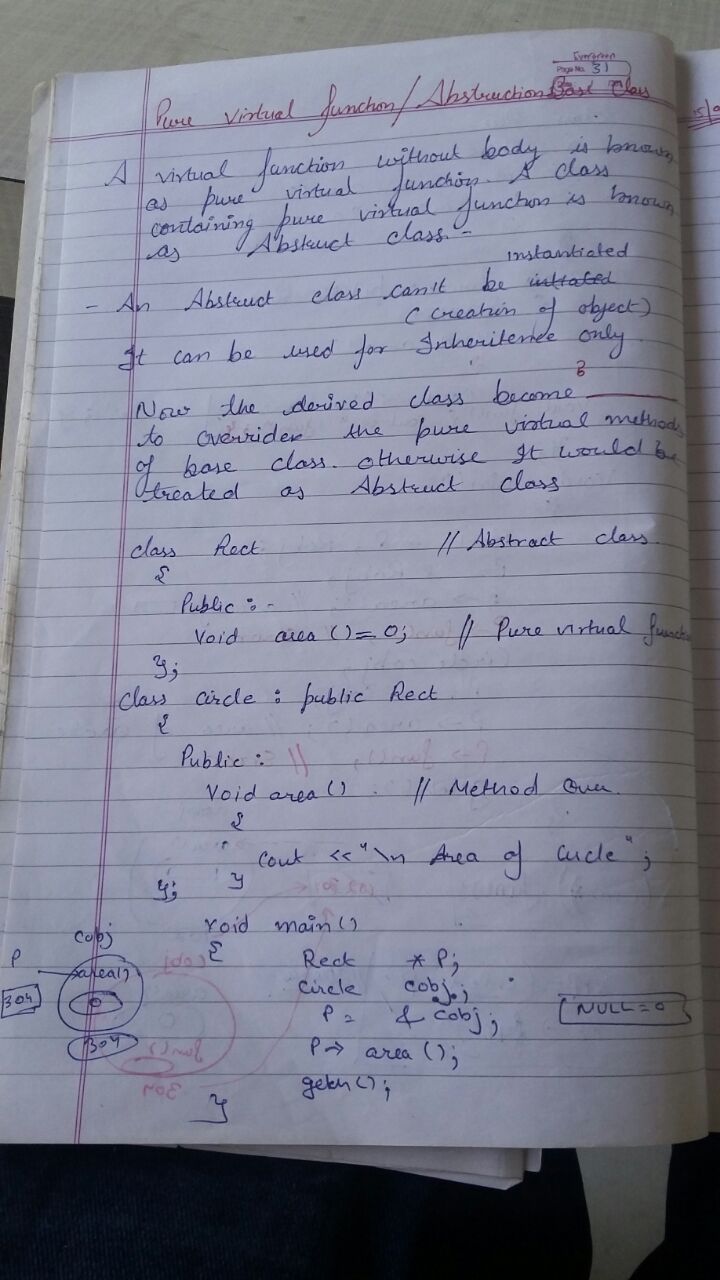 Evergreen
Page No. 31
Pure virtual function/Abstruction Base Class
A virtual function without body is known
as pure virtual function. A class
containing pure virtual function is known
as Abstruct class.-
instantiated
- An Abstruct class can't be intiated
(creation of object)
It can be used for Inheritence only.
Now the derived class become
to overrider the pure virtual methods
of base class. otherwise It would be
treated as Abstruct class
class Rect // Abstract class.
{
Public :-
void area ()= 0; // Pure virtual functi
};
class circle : public Rect
{
Public :
void area () // Method Over.
{
cout <<"\n Area of circle";
}
};
void main()
{
Rect *P;
circle cobj;
P = & cobj;
NULL = 0
P→ area ();
getch();
}
cobj
P
area()
304
304